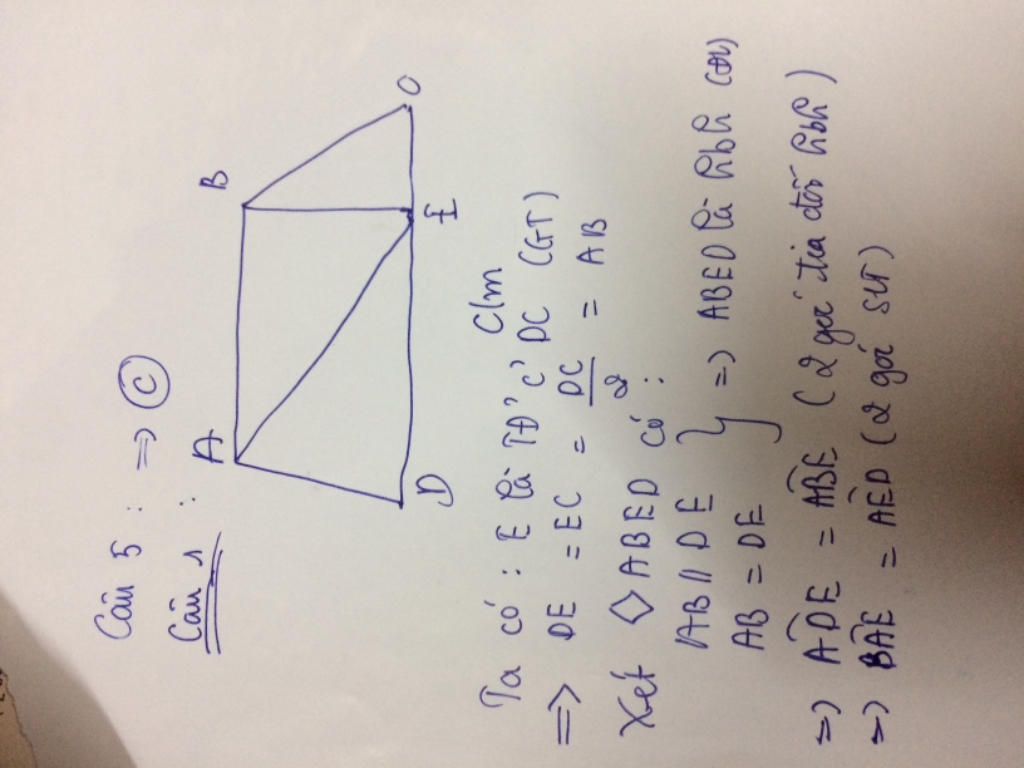 Câu 5 : => C
Câu 1 :
A
B
D
E
C
Clm
Ta có : E là TĐ' c' DC (GT)
=> DE = EC = DC/2 = AB
Xét ◇ ABED có :
AB // DE
AB = DE
} => ABED là hbh (đl)
=> ADE = ABE ( 2 góc đối hbh )
=> BAE = AED ( 2 góc SLT )